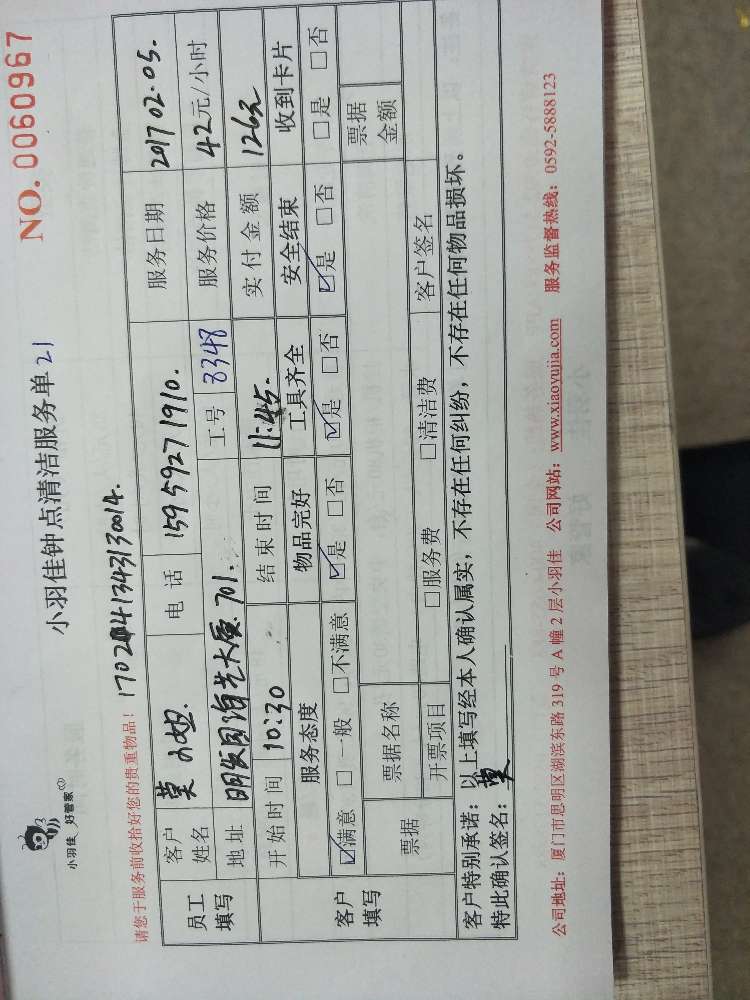 小羽佳 好管家
小羽佳钟点清洁服务单 21
NO. 0060967
请您于服务前收拾好您的贵重物品!
员工填写 客户姓名 莫小姐. 电 话 159 5927 1910. 服务日期 2017 02.05.
地址 明发国 大厦.701. 工号 8348 服务价格 42元/小时
开始时间 10:30 结束时间 11:45. 实付金额 126元
客户填写 服务态度 物品完好 工具齐全 安全结束 收到卡片
☑满意 □一般 □不满意 ☑是 □否 ☑是 □否 ☑是 □否 □是 □否
票据 票据名称 票据金额
开票项目 □服务费 □清洁费 客户签名
客户特别承诺:以上填写经本人确认属实,不存在任何纠纷,不存在任何物品损坏。
特此确认签名:莫
公司地址:厦门市思明区湖滨东路 319 号 A 幢 2 层小羽佳 公司网站:www.xiaoyujia.com 服务监督热线:0592-5888123